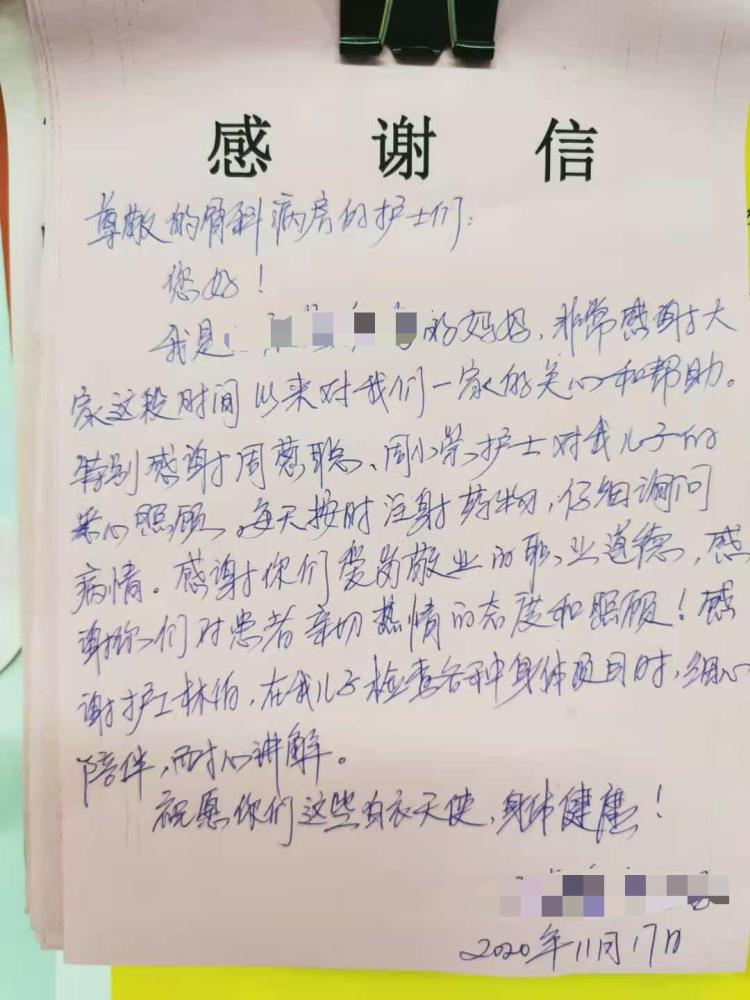 感谢信
尊敬的骨科病房的护士们:
您好!
我是 的妈妈,非常感谢大
家这段时间以来对我们一家的关心和帮助。
特别感谢周慧聪、周小荣护士对我儿子的
悉心照顾,每天按时注射药物,仔细询问
病情。感谢你们爱岗敬业的职业道德,感
谢你们对患者亲切热情的态度和照顾!感
谢护工林伯,在我儿子检查各种身体项目时,细心
陪伴,耐心讲解。
祝愿你们这些白衣天使,身体健康!
2020年11月17日